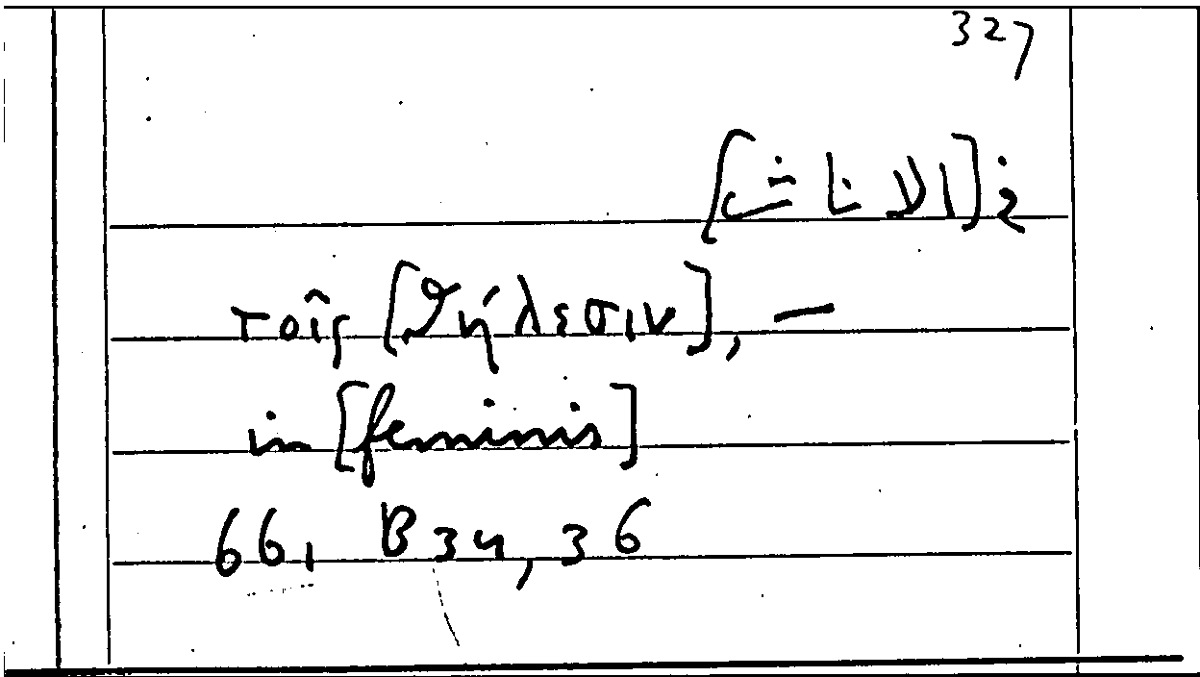 327
في [الاناث]
τοῖς [ϑήλεσιν], —
in [feminis]
66, B34, 36